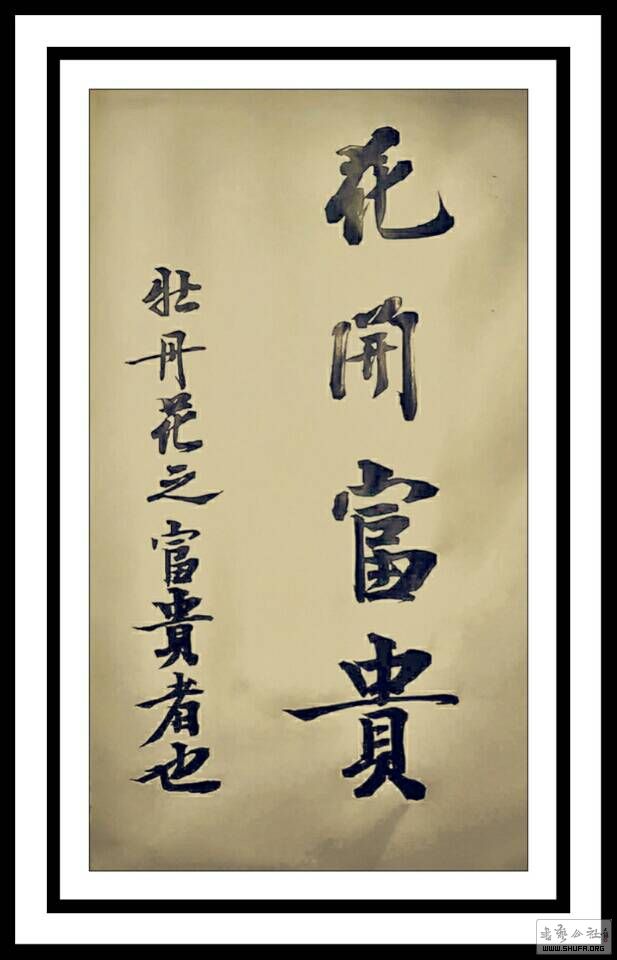 花開富貴
牡丹花之富貴者也
书艺公社
WWW.SHUFA.ORG